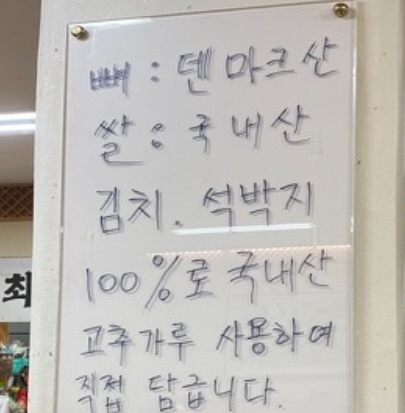 뼈 : 덴마크산
쌀 : 국내산
김치. 석박지
100%로 국내산
고추가루 사용하여
직접 담급니다.
최